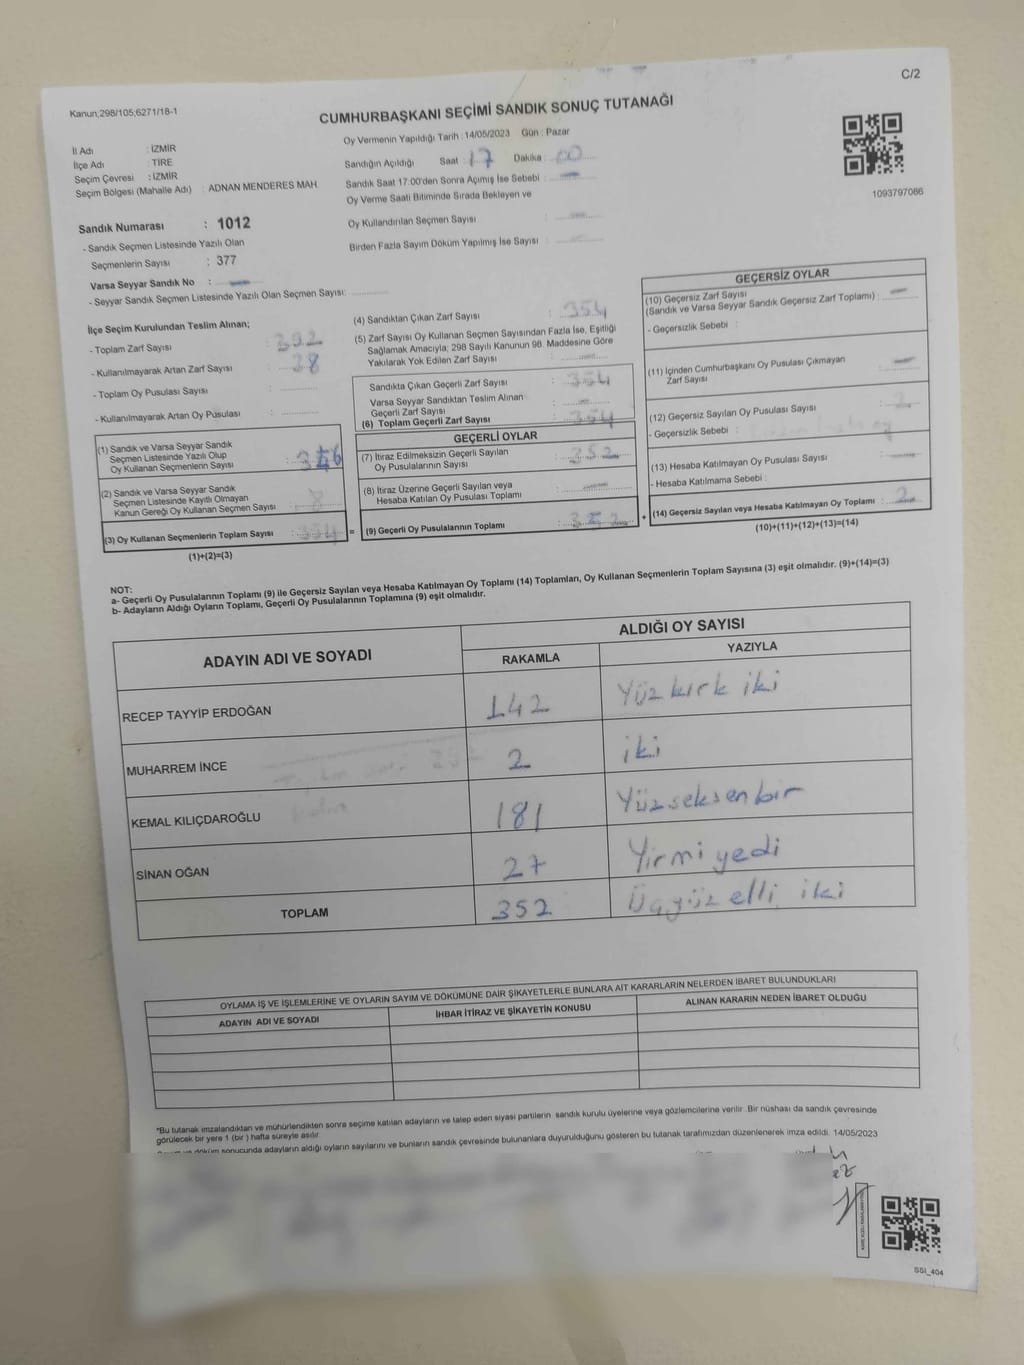 C/2
Kanun;298/105;6271/18-1
CUMHURBAŞKANI SEÇİMİ SANDIK SONUÇ TUTANAĞI
Oy Vermenin Yapıldığı Tarih :14/05/2023 Gün : Pazar
İl Adı : İZMİR
İlçe Adı : TİRE
Seçim Çevresi : İZMİR
Seçim Bölgesi (Mahalle Adı) : ADNAN MENDERES MAH.
Sandığın Açıldığı Saat : 17 Dakika : 00
Sandık Saat 17:00'den Sonra Açımış İse Sebebi :
Oy Verme Saati Bitiminde Sırada Bekleyen ve
Oy Kullandırılan Seçmen Sayısı :
Birden Fazla Sayım Döküm Yapılmış İse Sayısı :
1093797086
Sandık Numarası : 1012
- Sandık Seçmen Listesinde Yazılı Olan
Seçmenlerin Sayısı : 377
Varsa Seyyar Sandık No :
- Seyyar Sandık Seçmen Listesinde Yazılı Olan Seçmen Sayısı:
İlçe Seçim Kurulundan Teslim Alınan;
- Toplam Zarf Sayısı : 392
- Kullanılmayarak Artan Zarf Sayısı : 38
- Toplam Oy Pusulası Sayısı :
- Kullanılmayarak Artan Oy Pusulası :
(1) Sandık ve Varsa Seyyar Sandık
Seçmen Listesinde Yazılı Olup
Oy Kullanan Seçmenlerin Sayısı :
(2) Sandık ve Varsa Seyyar Sandık
Seçmen Listesinde Kayıtlı Olmayan
Kanun Gereği Oy Kullanan Seçmen Sayısı : 8
(3) Oy Kullanan Seçmenlerin Toplam Sayısı : 354
(1)+(2)=(3)
(4) Sandıktan Çıkan Zarf Sayısı : 354
(5) Zarf Sayısı Oy Kullanan Seçmen Sayısından Fazla İse, Eşitliği
Sağlamak Amacıyla; 298 Sayılı Kanunun 98. Maddesine Göre
Yakılarak Yok Edilen Zarf Sayısı :
Sandıkta Çıkan Geçerli Zarf Sayısı : 354
Varsa Seyyar Sandıktan Teslim Alınan
Geçerli Zarf Sayısı :
(6) Toplam Geçerli Zarf Sayısı : 354
GEÇERLİ OYLAR
(7) İtiraz Edilmeksizin Geçerli Sayılan
Oy Pusulalarının Sayısı : 352
(8) İtiraz Üzerine Geçerli Sayılan veya
Hesaba Katılan Oy Pusulası Toplamı :
= (9) Geçerli Oy Pusulalarının Toplamı : 352 +
GEÇERSİZ OYLAR
(10) Geçersiz Zarf Sayısı
(Sandık ve Varsa Seyyar Sandık Geçersiz Zarf Toplamı) :
- Geçersizlik Sebebi :
(11) İçinden Cumhurbaşkanı Oy Pusulası Çıkmayan
Zarf Sayısı :
(12) Geçersiz Sayılan Oy Pusulası Sayısı : 2
- Geçersizlik Sebebi :
(13) Hesaba Katılmayan Oy Pusulası Sayısı :
- Hesaba Katılmama Sebebi :
(14) Geçersiz Sayılan veya Hesaba Katılmayan Oy Toplamı : 2
(10)+(11)+(12)+(13)=(14)
NOT:
a- Geçerli Oy Pusulalarının Toplamı (9) ile Geçersiz Sayılan veya Hesaba Katılmayan Oy Toplamı (14) Toplamları, Oy Kullanan Seçmenlerin Toplam Sayısına (3) eşit olmalıdır. (9)+(14)=(3)
b- Adayların Aldığı Oyların Toplamı, Geçerli Oy Pusulalarının Toplamına (9) eşit olmalıdır.
ADAYIN ADI VE SOYADI
ALDIĞI OY SAYISI
RAKAMLA YAZIYLA
RECEP TAYYİP ERDOĞAN 142 Yüz kırk iki
MUHARREM İNCE 2 iki
KEMAL KILIÇDAROĞLU 181 Yüzseksenbir
SİNAN OĞAN 27 Yirmi yedi
TOPLAM 352 Üçyüz elli iki
OYLAMA İŞ VE İŞLEMLERİNE VE OYLARIN SAYIM VE DÖKÜMÜNE DAİR ŞİKAYETLERLE BUNLARA AİT KARARLARIN NELERDEN İBARET BULUNDUKLARI
ADAYIN ADI VE SOYADI İHBAR İTİRAZ VE ŞİKAYETİN KONUSU ALINAN KARARIN NEDEN İBARET OLDUĞU
*Bu tutanak imzalandıktan ve mühürlendikten sonra seçime katılan adayların ve talep eden siyasi partilerin sandık kurulu üyelerine veya gözlemcilerine verilir. Bir nüshası da sandık çevresinde
görülecek bir yere 1 (bir) hafta süreyle asılır.
sonucunda adayların aldığı oyların sayılarını ve bunların sandık çevresinde bulunanlara duyurulduğunu gösteren bu tutanak tarafımızdan düzenlenerek imza edildi. 14/05/2023
SSI_404